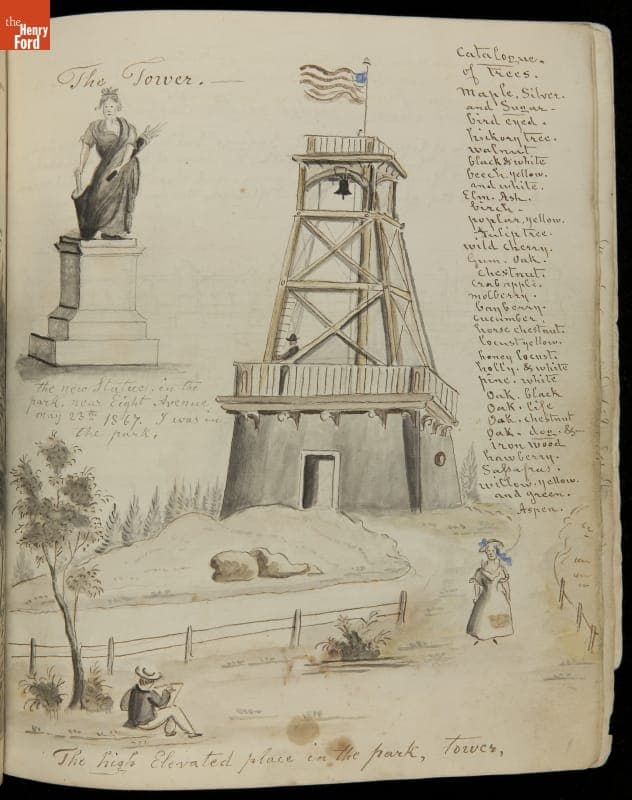 the
Henry
Ford
The Tower. —
Catalogue.
of Trees.
Maple, Silver.
and Sugar -
bird eyed.
hickory tree.
walnut
black & white
beech, yellow.
and white.
Elm. Ash.
birch -
poplar, yellow.
Tulip tree.
wild cherry.
Gum. Oak.
Chestnut.
Crab apple.
molberry.
bayberry.
cucumber.
horse chestnut.
locust yellow.
honey locust.
holly. & white
pine. white
Oak. black
Oak. life
Oak. chestnut
Oak. &-
iron wood
hawberry.
Salsafras.
willow. yellow
and green.
Aspen.
the new Statue, in the
park, near Eight Avenue
may 23th 1867. I was in
the park.
The high Elevated place in the park, tower,